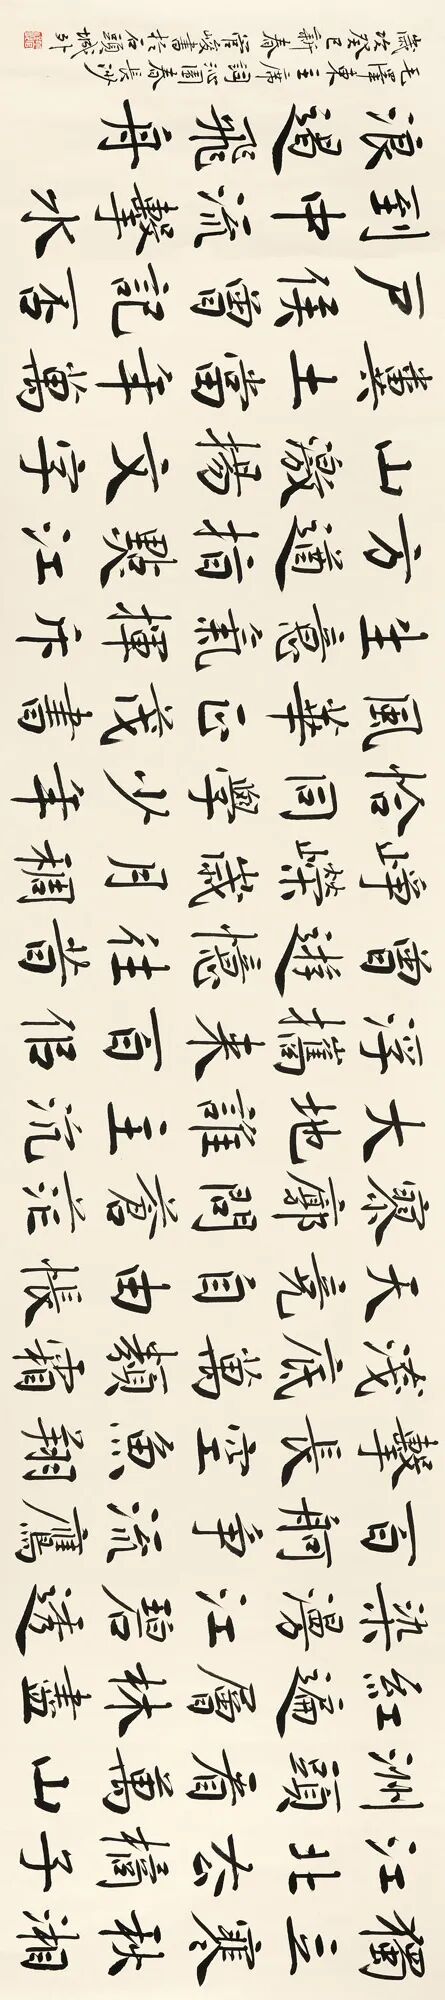 獨立寒秋湘
江北去橘子
洲頭看萬山
紅遍層林盡
染漫江碧透
百舸爭流鷹
擊長空魚翔
淺底萬類霜
天竟自由悵
寥廓問蒼茫
大地誰主沉
浮攜來百侣
曾遊憶往昔
崢嶸歲月稠
恰同學少年
風華正茂書
生意氣揮斥
方遒指點江
山激揚文字
糞土當年萬
户侯曾記否
到中流擊水
浪遏飛舟
毛澤東主席詞沁園春長沙
歲次癸巳新春管峻書於石頭城外